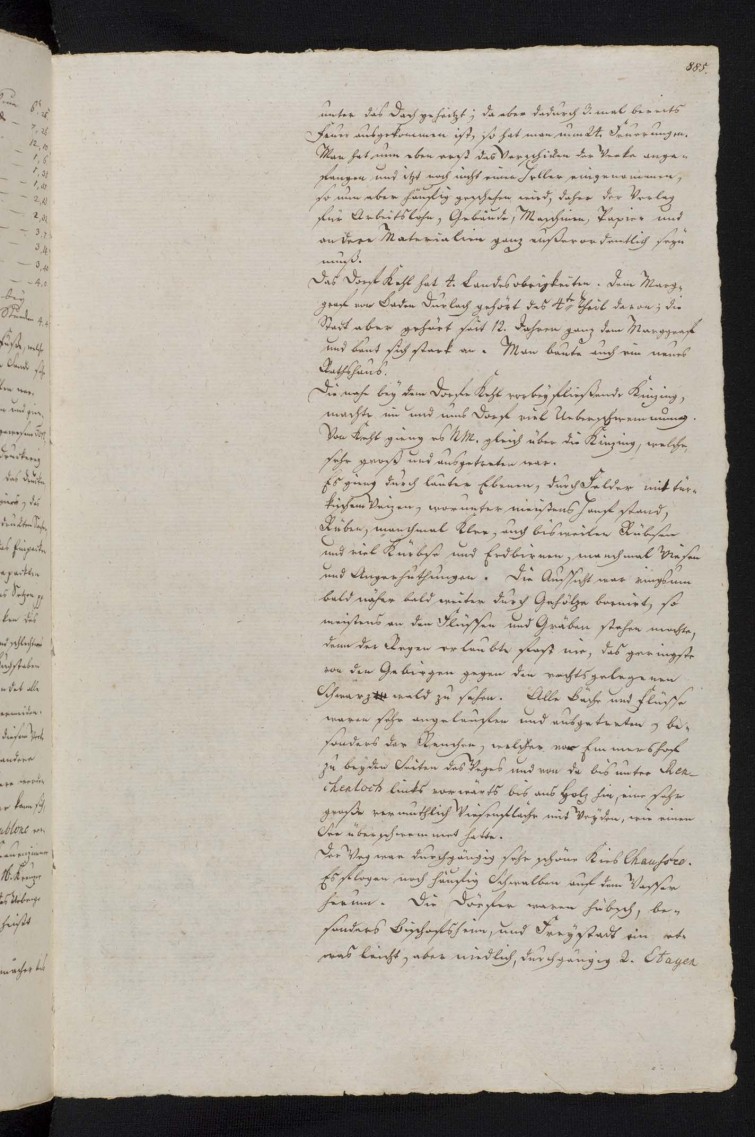 885.
unter das Dach gehitzt; da aber dadurch 2. mal bereits
Feuer ausgekommen ist, so hat man nun 24. Feuerungen.
Man hat nun eben erst das Verschicken der Werke ange-
fangen und itzt noch nicht einen Heller eingenommen,
so nun aber häuffig geschehen wird, daher der Verlag
für Arbeitslohn, Gebäude, Maschinen, Papier und
andere Materialien ganz außerordentlich seyn
muß.
Das Dorf Kehl hat 4. Landesobrigkeiten. Dem Marg-
graf von Baden Durlach gehört des 4te Theil davon; die
Stadt aber gehört seit 12. Jahren ganz dem Marggraf
und baut sich stark an. Man baute auch ein neues
Rathshaus.
Die nahe bey dem Dorfe Kehl vorbeyfließende Kinzing,
machte im und ums Dorf viel Ueberschwemmung.
Von Kehl gieng es NM. gleich über die Kinzing, welche
sehr groß und ausgetreten war.
Es gieng durch lauter Ebenen, durch Felder mit tür-
kischen Weizen, worunter meistens Hanf stand,
Rüben, manchmal Klee, auch bisweilen Rübsen
und viel Kürbse und Erdbirnen, manchmal Wiesen
und Angerhuthungen. Die Aussicht war ringsum
bald näher bald weiter durch Gehölze bornirt, so
meistens an den Flüssen und Gräben stehen mochte,
denn der Regen erlaubte fast nie, das geringste
von den Gebirgen gegen den rechtsgelegenen
Schwarzwald zu sehen. Alle Bäche und Flüsse
waren sehr angelauffen und ausgetreten, be-
sonders der Renchen, welcher vor Emmershof
zu beyden Seiten des Weges und von da bis unter Ren-
chenloch links vorwärts bis ans Holz hin, eine sehr
große vermuthlich Wiesenfläche mit Weyden, wie einen
See überschwemmet hatte.
Der Weg war durchgängig sehr schöne Kies Chaussée.
Es flogen noch häuffig Schwalben auf dem Wasser
herum. Die Dörfer waren hübsch, be-
sonders Bischofsheim, und Freystadt ein et-
was leicht, aber niedlich, durchgängig 2. Etagen